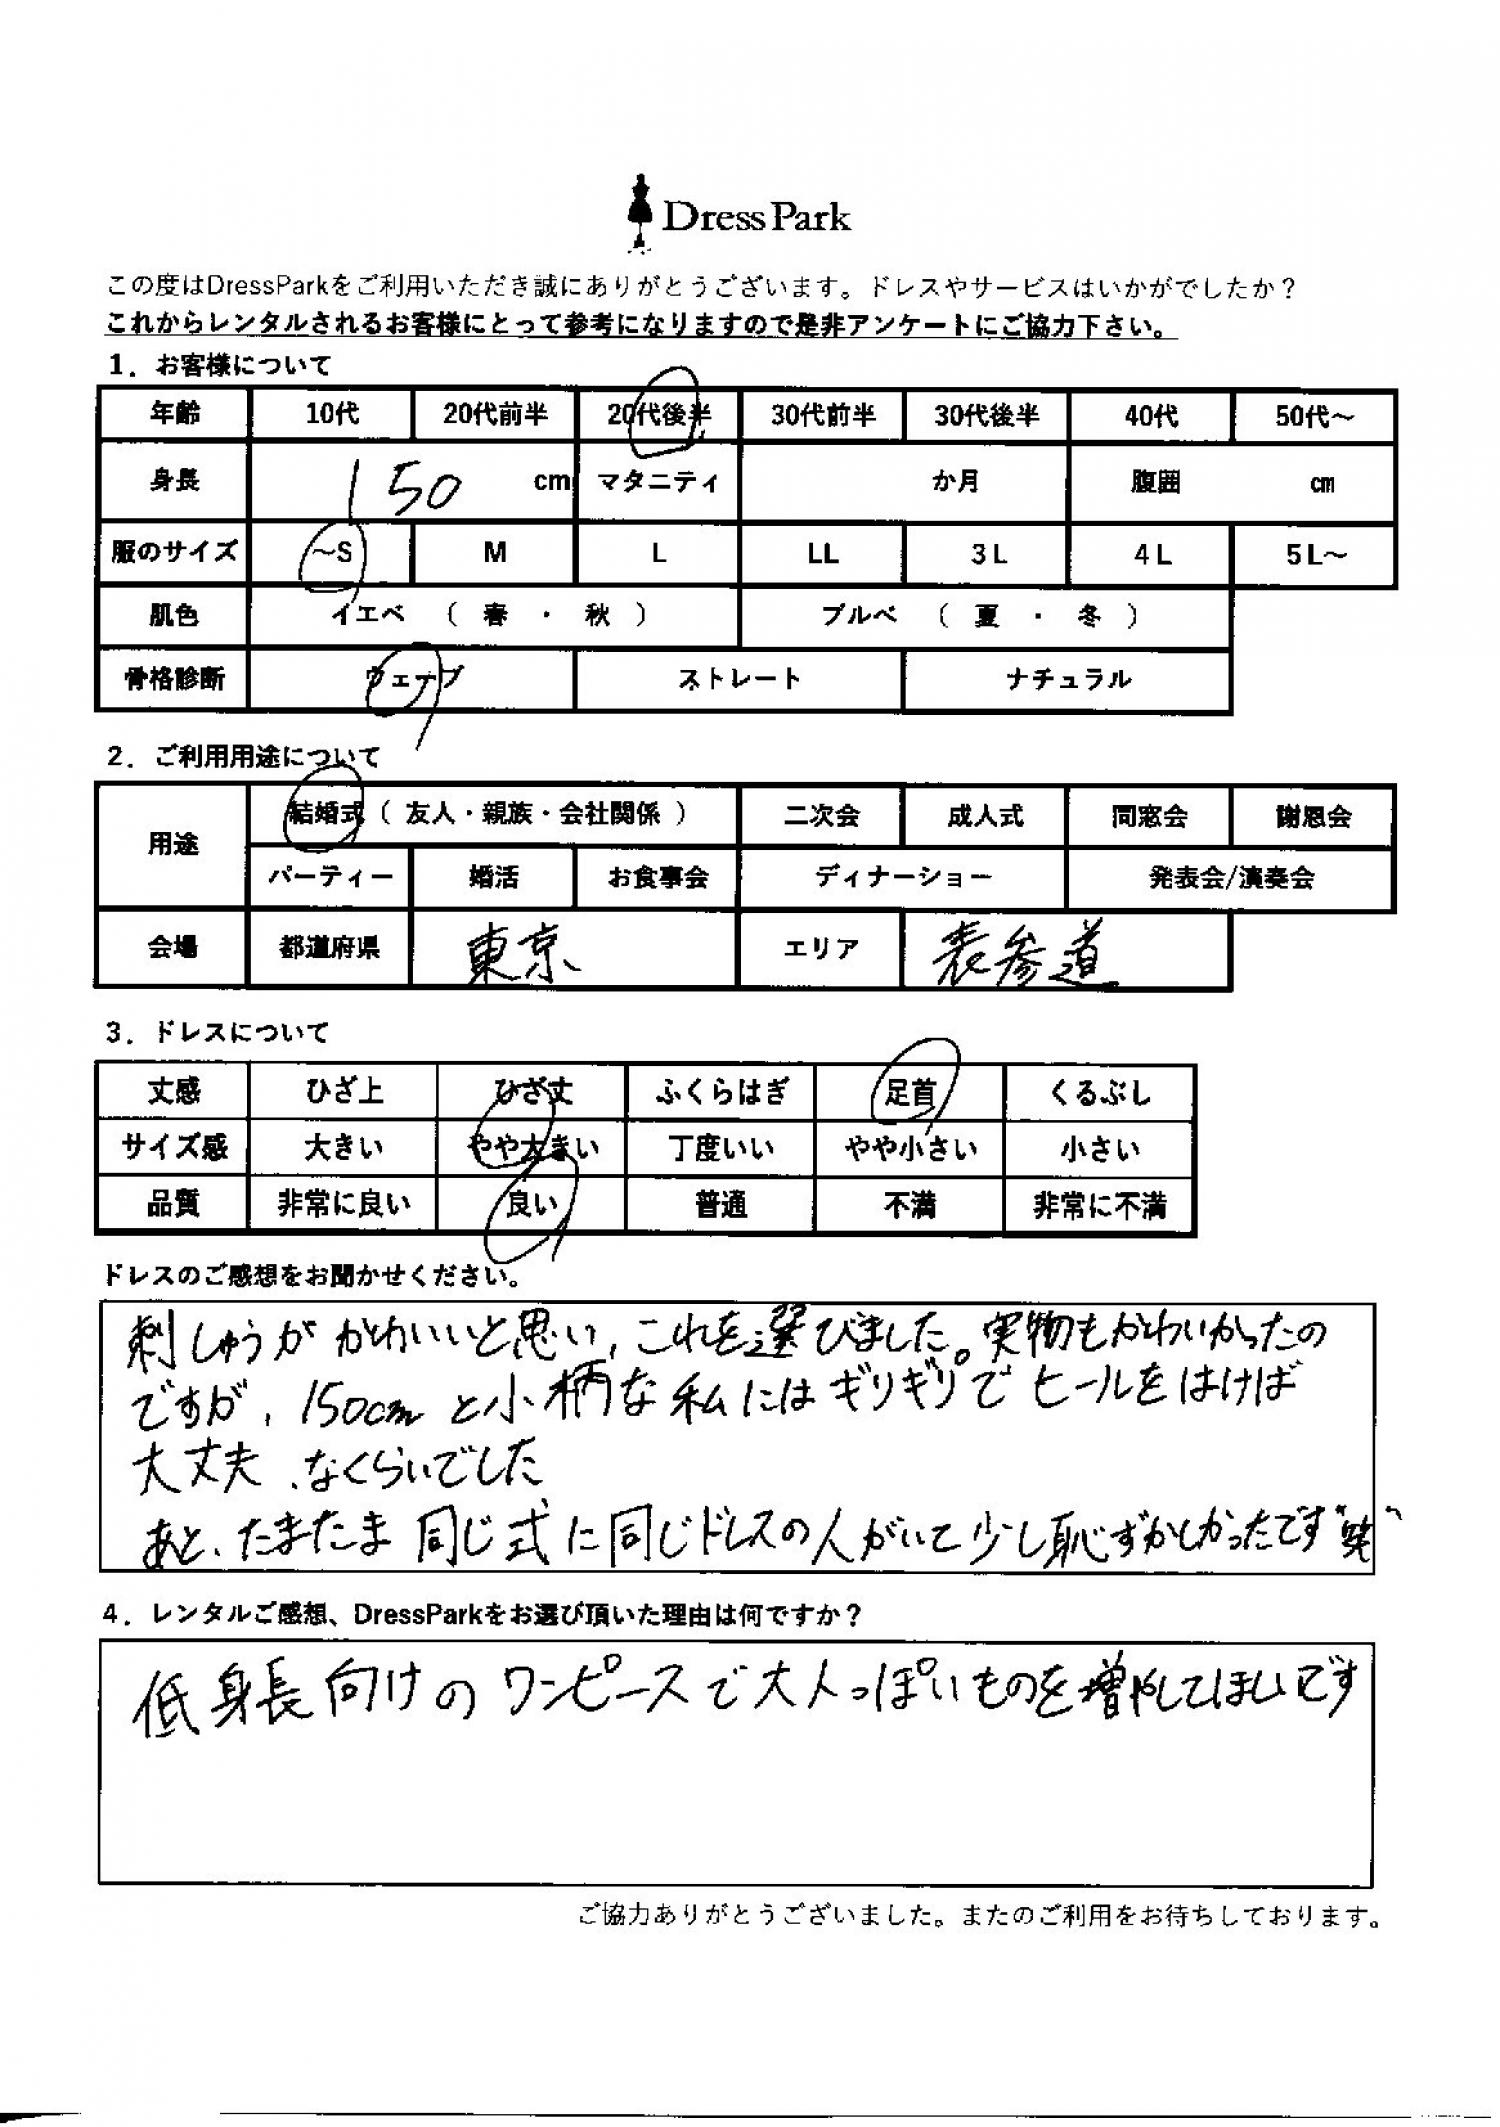 Dress Park
この度はDressParkをご利用いただき誠にありがとうございます。ドレスやサービスはいかがでしたか？
これからレンタルされるお客様にとって参考になりますので是非アンケートにご協力下さい。
1．お客様について
年齢 10代 20代前半 20代後半 30代前半 30代後半 40代 50代～
身長 150 cm マタニティ か月 腹囲 cm
服のサイズ ～S M L LL 3L 4L 5L～
肌色 イエベ （ 春 ・ 秋 ） ブルベ （ 夏 ・ 冬 ）
骨格診断 ウェーブ ストレート ナチュラル
2．ご利用用途について
用途 結婚式（ 友人・親族・会社関係 ） 二次会 成人式 同窓会 謝恩会
パーティー 婚活 お食事会 ディナーショー 発表会/演奏会
会場 都道府県 東京 エリア 表参道
3．ドレスについて
丈感 ひざ上 ひざ丈 ふくらはぎ 足首 くるぶし
サイズ感 大きい やや大きい 丁度いい やや小さい 小さい
品質 非常に良い 良い 普通 不満 非常に不満
ドレスのご感想をお聞かせください。
刺しゅうがかわいいと思い、これを選びました。実物もかわいかったの
ですが、150cmと小柄な私にはギリギリでヒールをはけば
大丈夫、なくらいでした
あと、たまたま同じ式に同じドレスの人がいて少し恥ずかしかったです“笑”
4．レンタルご感想、DressParkをお選び頂いた理由は何ですか？
低身長向けのワンピースで大人っぽいものを増やしてほしいです
ご協力ありがとうございました。またのご利用をお待ちしております。